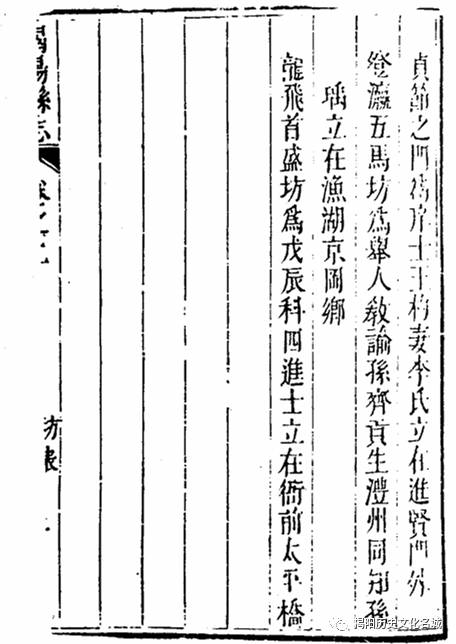 貞節之門爲庠士王妻李氏立在進賢門外
登瀛五馬坊爲舉人教諭孫齊貢生澧州同知孫
瑀立在漁湖京岡鄉
龍飛首盛坊爲戊辰科四進士立在衙前太平橋
揭陽縣志
坊表
揭阳历史文化名城